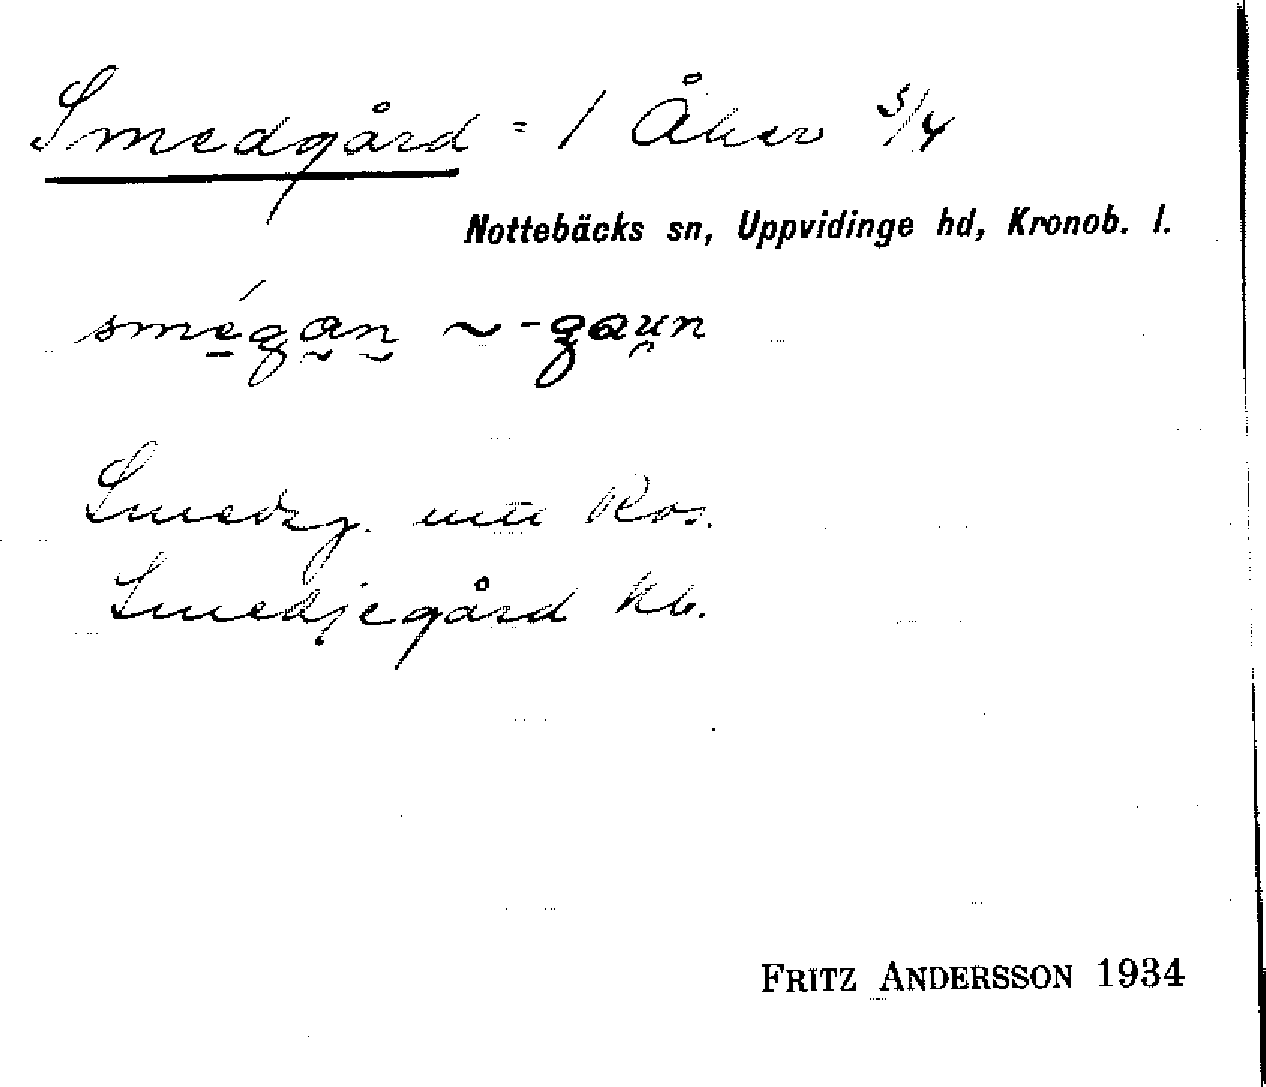 Smedgård = / Åker 5/4
Nottebäcks sn, Uppvidinge hd, Kronob. l.
smégan ~ -gaun
Smedsg. Ros.
Smedjegård kb.
FRITZ ANDERSSON 1934